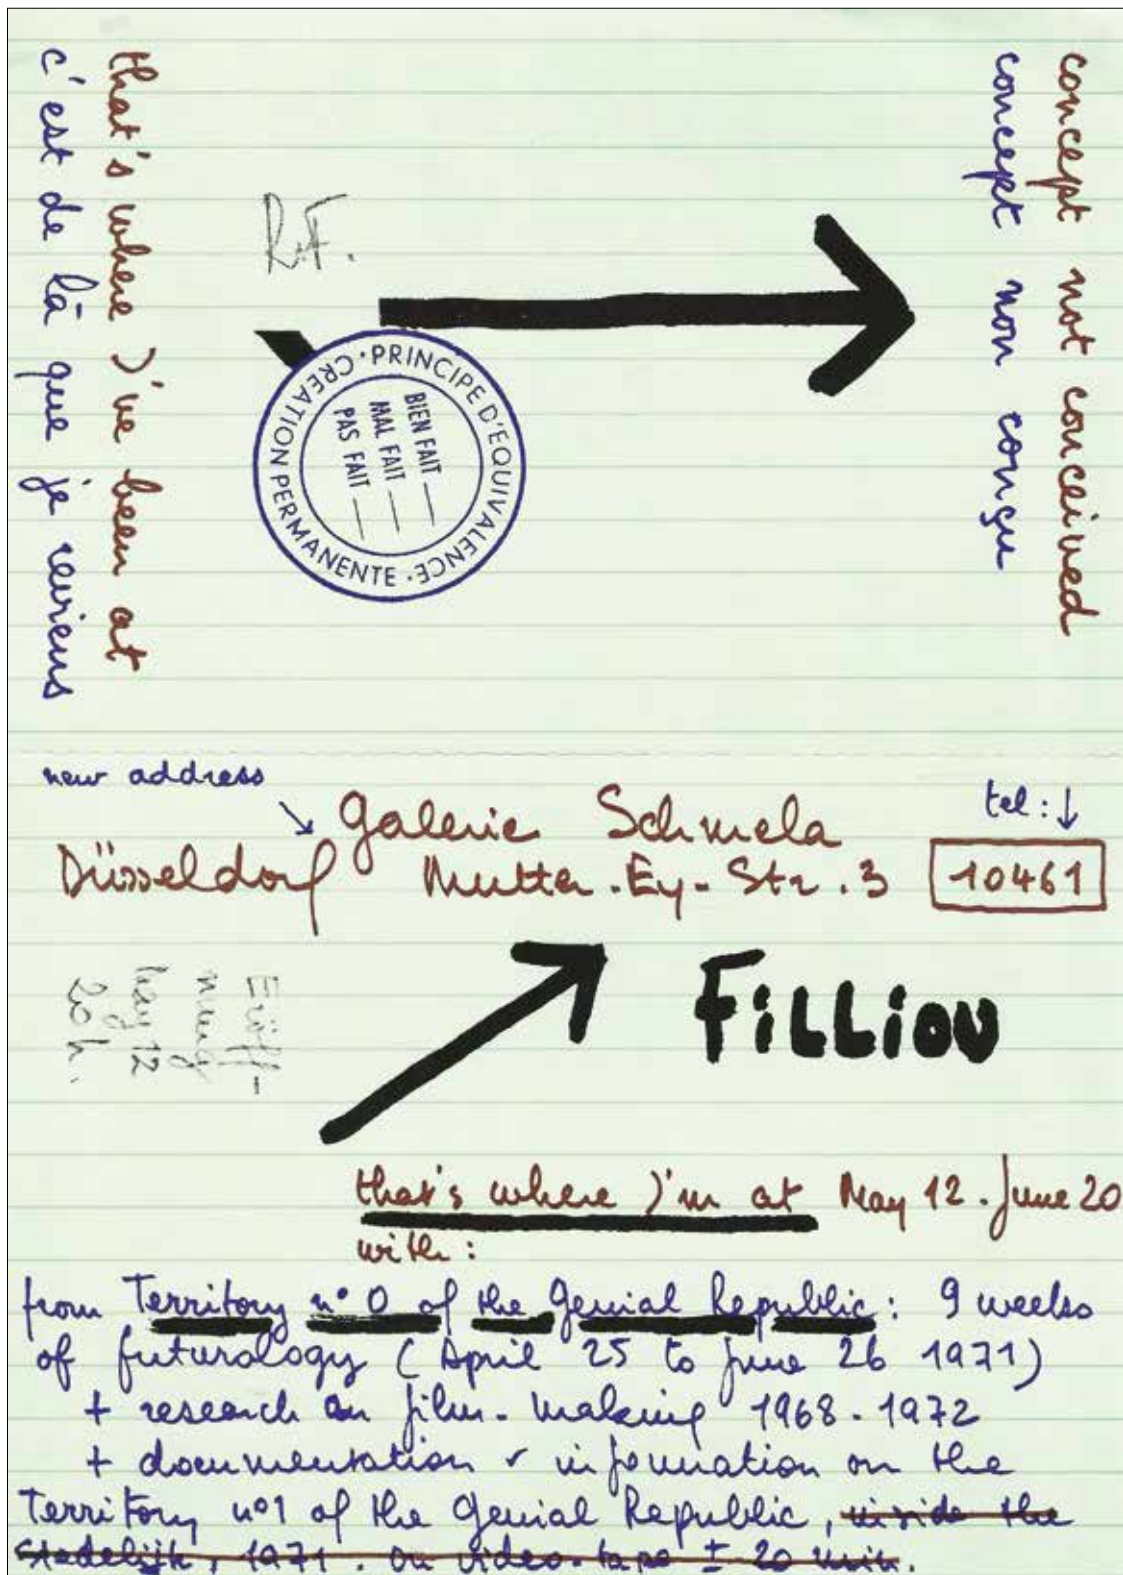 concept not conceived
concept non conçu
that's where I've been at
c'est de là que je reviens
R.F.
PRINCIPE D'EQUIVALENCE · CREATION PERMANENTE ·
BIEN FAIT —
MAL FAIT —
PAS FAIT —
new address
tel: ↓
Galerie Schmela
Düsseldorf Mutter-Ey-Str. 3 10461
Eröff-
nung
May 12
20 h.
FiLLiOU
that's where I'm at May 12 - June 20
with:
from Territory n° 0 of the Genial Republic: 9 weeks
of futurology (April 25 to June 26 1971)
+ research on film-making 1968-1972
+ documentation & information on the
Territory n°1 of the Genial Republic, inside the
Stedelijk, 1971. on video-tape ± 20 min.